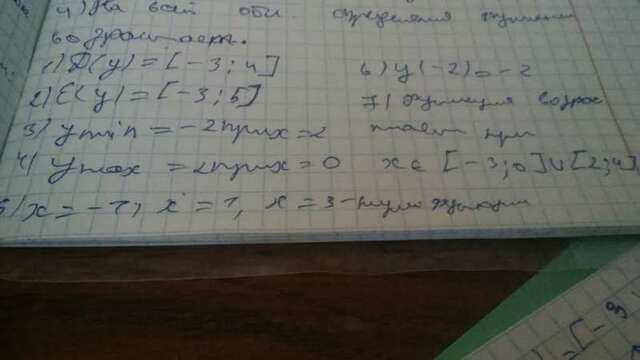 4) На всей обл. определения функции
возрастает.
1) D(y) = [-3; 4]
2) E(y) = [-3; 5]
3) ymin = -2 при x = 2
4) ymax = 2 при x = 0
5) x = -1, x = 1, x = 3 - нули функции
6) y(-2) = -2
7) Функция возрас
тает при
x ∈ [-3; 0] ∪ [2; 4]